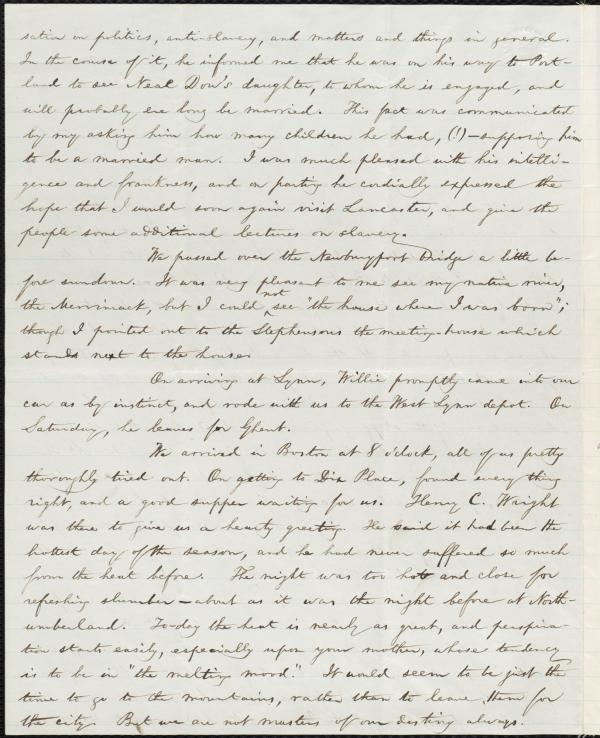 sation on politics, anti-slavery, and matters and things in general.
In the course of it, he informed me that he was on his way to Port-
land to see Neal Dow's daughter, to whom he is engaged, and
will probably ere long be married. This fact was communicated
by my asking him how many children he had, (!) — supposing him
to be a married man. I was much pleased with his intelli-
gence and frankness, and on parting he cordially expressed the
hope that I would soon again visit Lancaster, and give the
people some additional lectures on slavery.
We passed over the Newburyport Bridge a little be-
fore sundown. It was very pleasant to me see my native river,
the Merrimack, but I could not see "the house where I was born";
though I pointed out to the Stephensons the meeting-house which
stands next to the house.
On arriving at Lynn, Willie promptly came into our
car as by instinct, and rode with us to the West Lynn depot. On
Saturday, he leaves for Ghent.
We arrived in Boston at 8 o'clock, all of us pretty
thoroughly tired out. On getting to Dix Place, found every thing
right, and a good supper waiting for us. Henry C. Wright
was there to give us a hearty greeting. He said it had been the
hottest day of the season, and he had never suffered so much
from the heat before. The night was too hot and close for
refreshing slumber — about as it was the night before at North-
umberland. To-day the heat is nearly as great, and perspira-
tion starts easily, especially upon your mother, whose tendency
is to be in "the melting mood." It would seem to be just the
time to go to the mountains, rather than to leave them for
the city. But we are not masters of our destiny always.